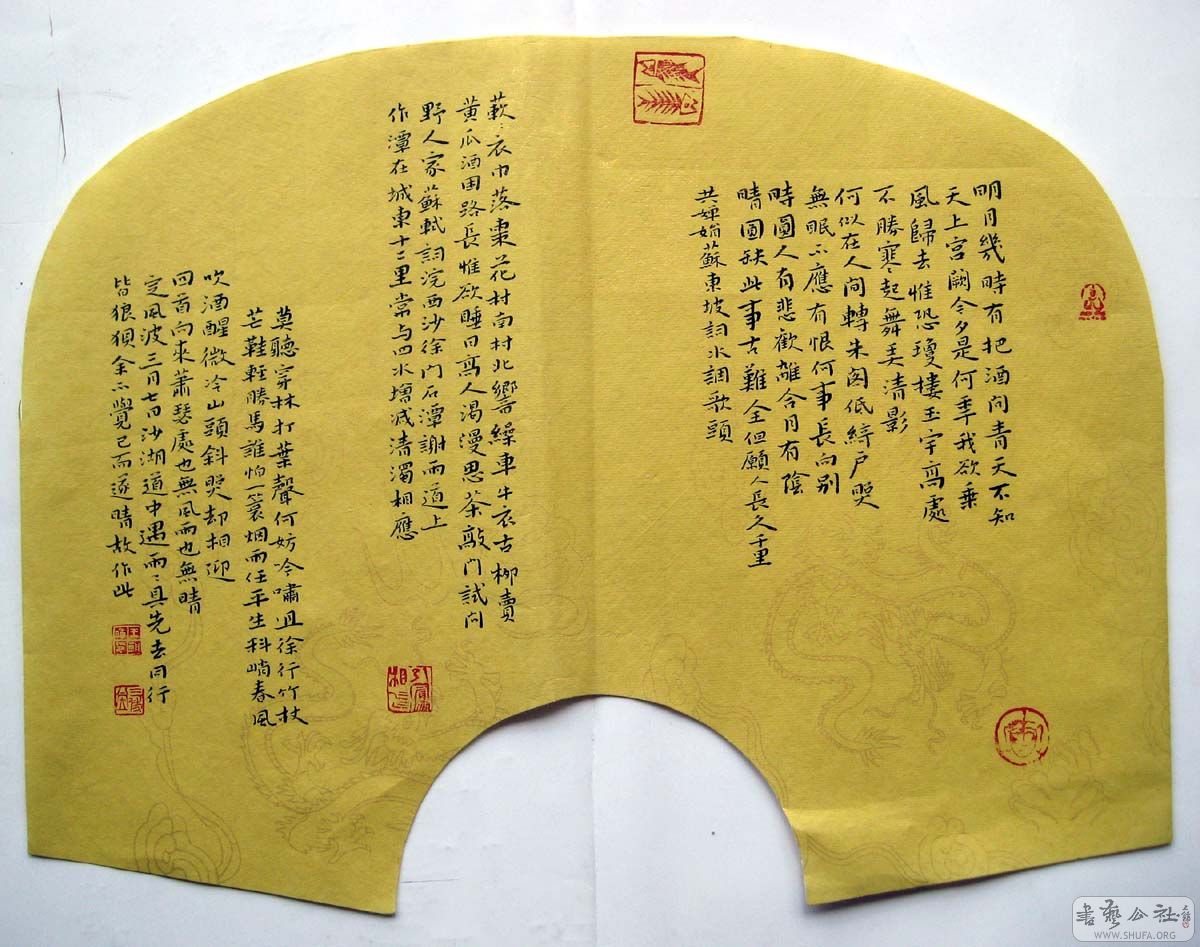 明月幾時有把酒问青天不知
天上宫阙今夕是何年我欲乘
風歸去惟恐瓊樓玉宇高處
不勝寒起舞弄清影
何似在人间轉朱阁低绮户照
無眠不應有恨何事長向别
時圓人有悲歡離合月有陰
晴圆缺此事古難全但願人長久千里
共婵娟蘇東坡词水調歌頭
蔌〻衣巾落棗花村南村北響繰車牛衣古柳賣
黄瓜酒困路長惟欲睡日高人渴漫思茶敲門試问
野人家蘇軾詞浣西沙徐门石潭謝雨道上
作潭在城東十二里常与四水增减清濁相應
莫聽穿林打葉聲何妨吟嘯且徐行竹杖
芒鞋輕勝馬誰怕一蓑烟雨任平生料峭春風
吹酒醒微冷山頭斜照却相迎
回首向來萧瑟處也無風雨也無晴
定風波三月七日沙湖道中遇雨〻具先去同行
皆狼狽余不覺已而遂晴故作此
書藝公社
WWW.SHUFA.ORG